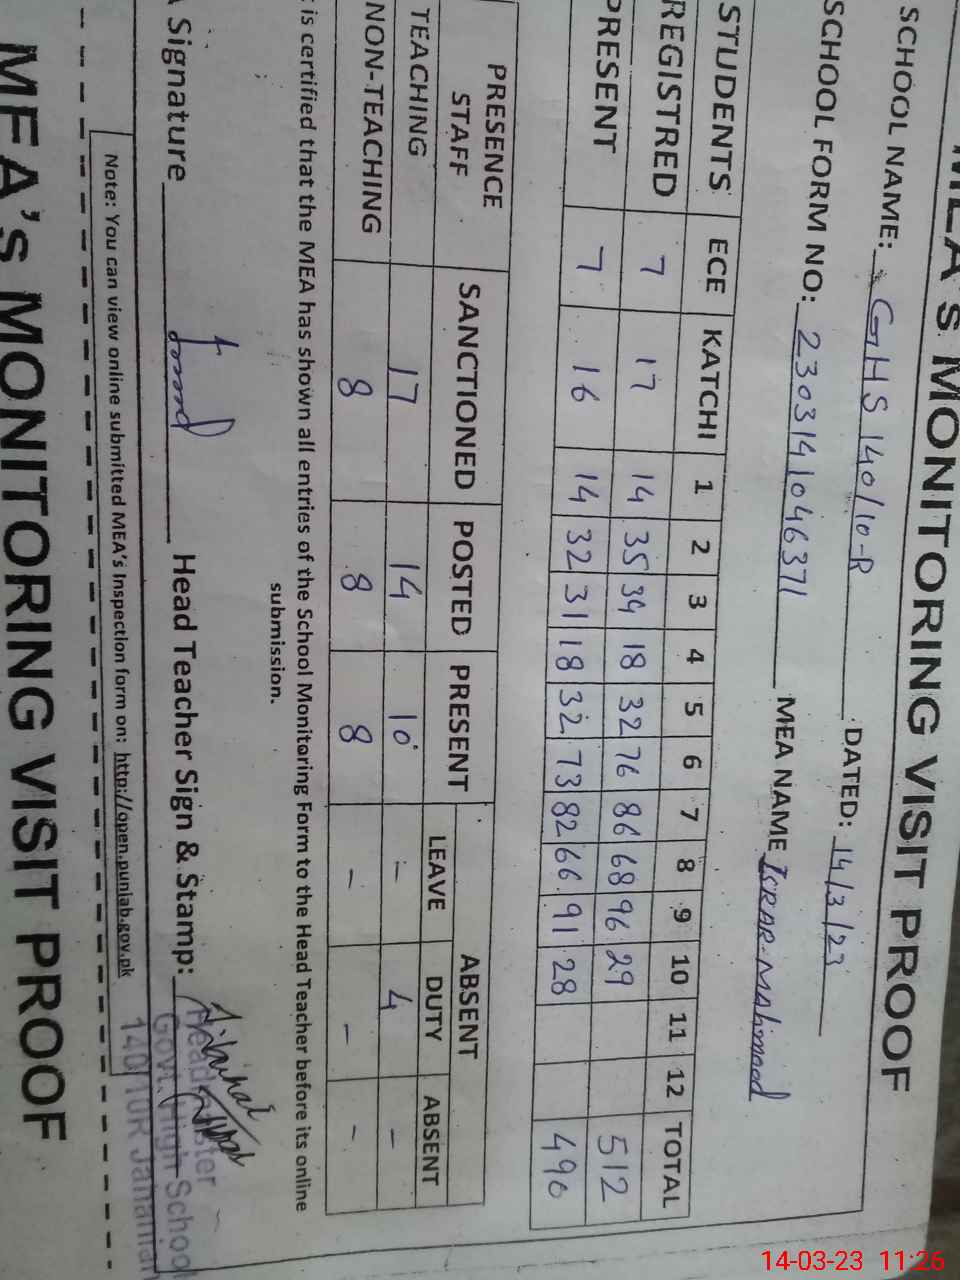 MEA's MONITORING VISIT PROOF
SCHOOL NAME: GHS 140/10-R DATED: 14/3/23
SCHOOL FORM NO: 2303141046371 MEA NAME ISRAR-Mahmood
STUDENTS ECE KATCHI 1 2 3 4 5 6 7 8 9 10 11 12 TOTAL
REGISTRED 7 17 14 35 34 18 32 76 86 68 96 29 512
PRESENT 7 16 14 32 31 18 32 73 82 66 91 28 490
PRESENCE STAFF SANCTIONED POSTED PRESENT ABSENT
LEAVE DUTY ABSENT
TEACHING 17 14 10 - 4 -
NON-TEACHING 8 8 8 - - -
is certified that the MEA has shown all entries of the School Monitoring Form to the Head Teacher before its online
submission.
Signature Head Teacher Sign & Stamp:
Govt. High School
140/10R Jahanian
Note: You can view online submitted MEA's Inspection form on: http://open.punjab.gov.pk
MEA's MONITORING VISIT PROOF
14-03-23 11:26